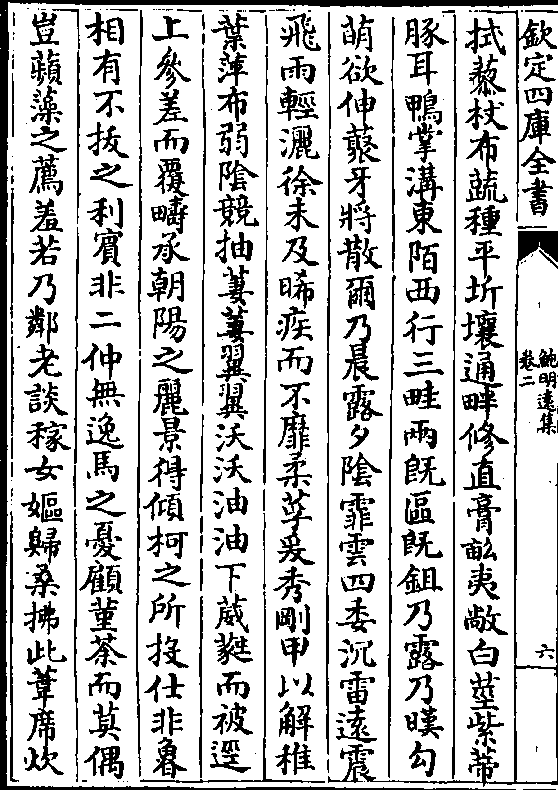 欽定四庫全書
鮑明遠集
卷二
六
拭藜杖布蔬種平圻壤通畔修直膏畝夷敞白莖紫蔕
豚耳鴨掌溝東陌西行三畦兩既區既鉏乃露乃暵勾
萌欲伸藂牙將散爾乃晨露夕陰霏雲四委沉雷遠震
飛雨輕灑徐未及晞疾而不靡柔莩爰秀剛甲以解稚
葉萍布弱陰競抽萋萋翼翼沃沃油油下葳蕤而被逕
上參差而覆疇承朝陽之麗景得傾柯之所投仕非魯
相有不拔之利賓非二仲無逸馬之憂顧堇荼而莫偶
豈蘋藻之薦羞若乃鄰老談稼女嫗歸桑拂此葦席炊